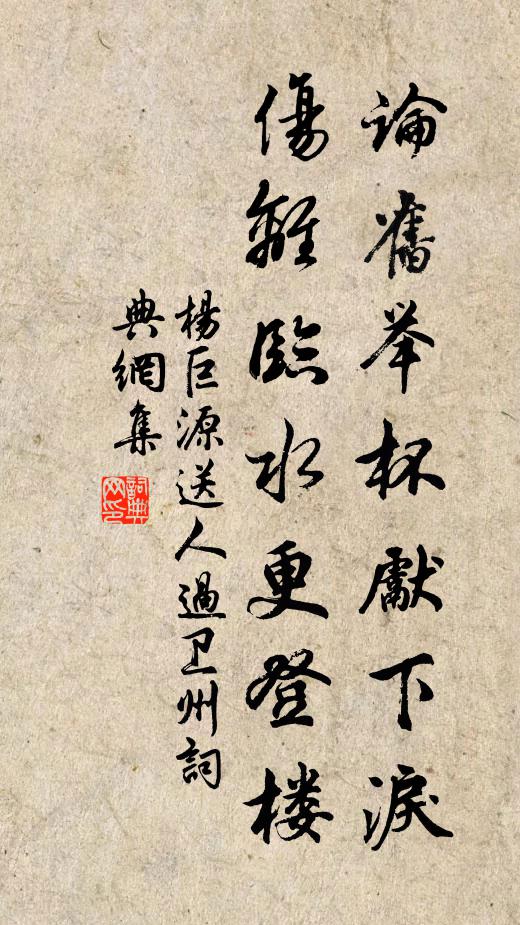 論舊举杯獻下淚
傷離臨水更登楼
楊巨源送人過卫州詞
典網集
詞典
网印